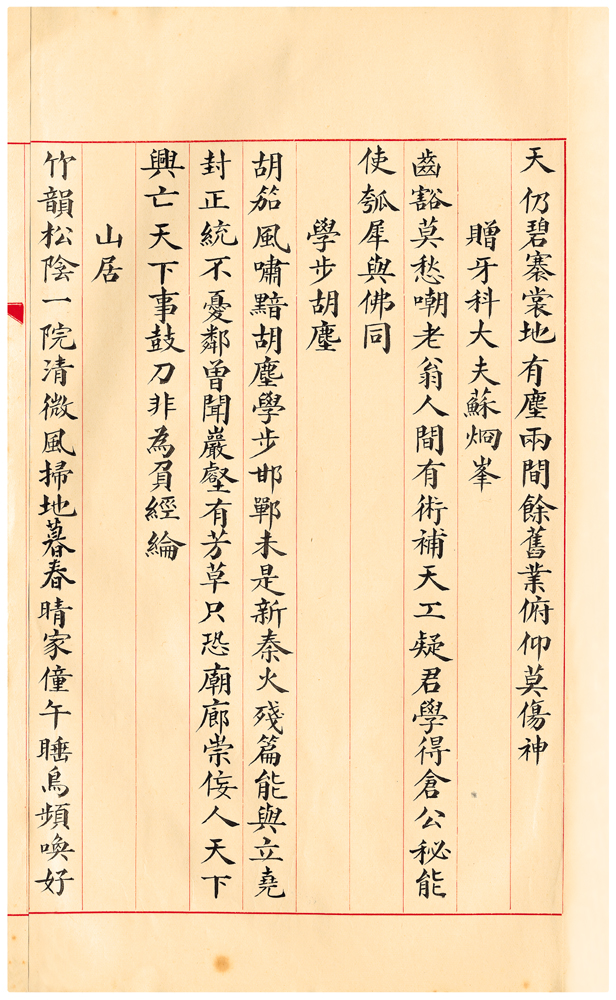 天仍碧褰裳地有塵兩間餘舊業俯仰莫傷神
贈牙科大夫蘇炯峯
齒豁莫愁嘲老翁人間有術補天工疑君學得倉公秘能
使瓠犀與佛同
學步胡塵
胡笳風嘯黯胡塵學步邯鄲未是新秦火殘篇能與立堯
封正統不憂鄰曾聞巖壑有芳草只恐廟廊崇佞人天下
興亡天下事鼓刀非為負經綸
山居
竹韻松陰一院清微風掃地暮春晴家僮午睡鳥頻喚好